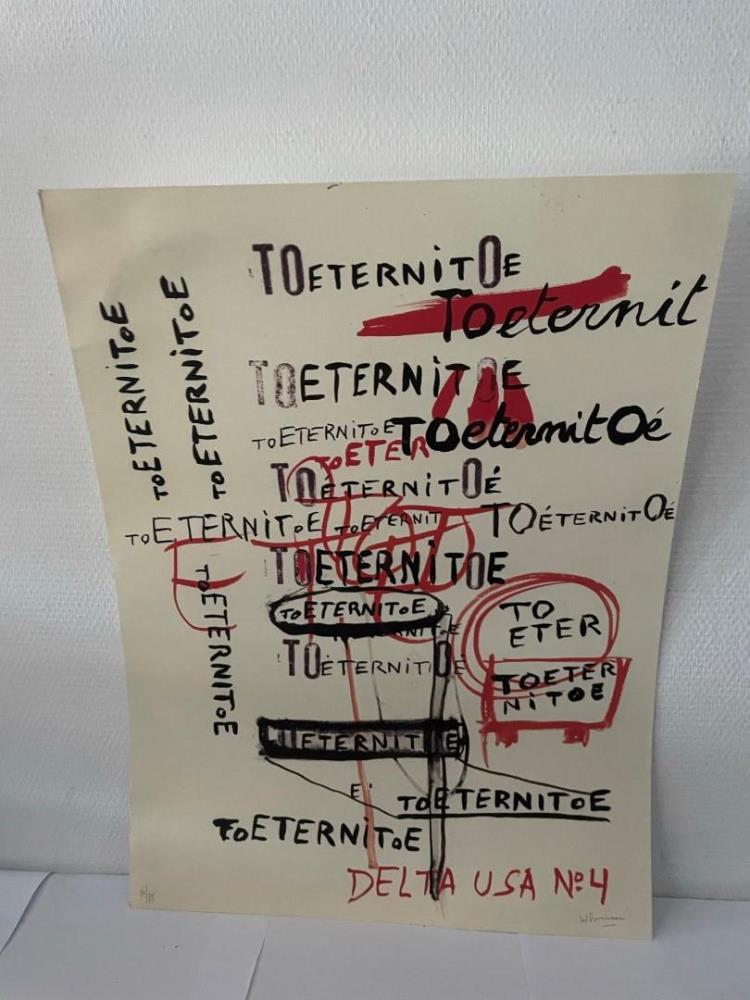 TOETERNiTOE
TOeternit
TOETERNiTOE
TOETERNiTOE
TOETERNiTOE
TOETERNiToE
TOeternitOé
TOETER
TOÉTERNiTOÉ
TOETERNiTOE
TOETERNIT
TOÉTERNiTOÉ
TOETERNiTOE
TOETERNiTOE
TOETERNiTOE
TO
ETER
TOÉTERNiTOÉ
TOETER
NiTOE
ETERNIT E
E
TOETERNITOE
TOETERNiTOE
DELTA USA Nº4